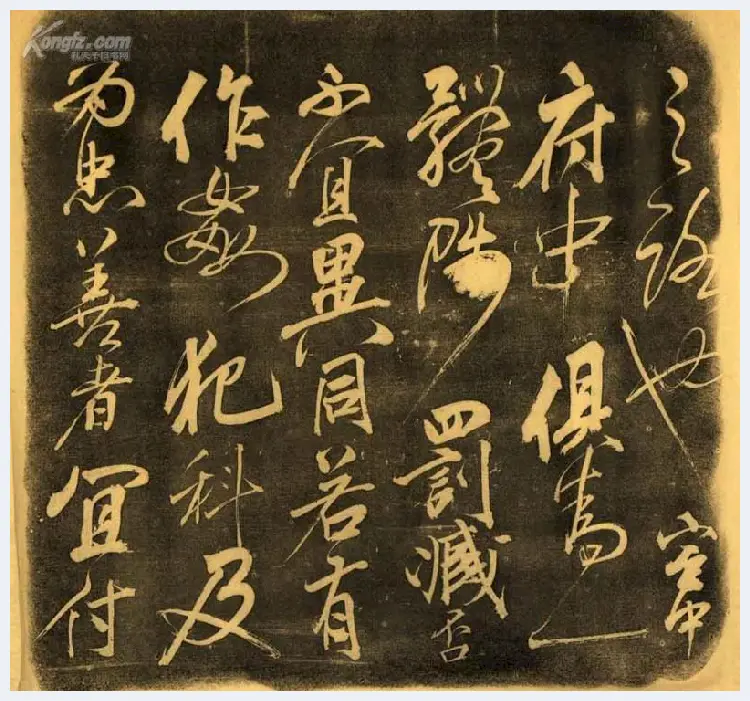 之路也宮中
府中俱為一
體陟罰臧否
不宜異同若有
作姦犯科及
為忠善者宜付
Kongfz.com
孔夫子旧书网